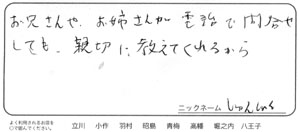 お兄さんや、お姉さんが電話で問合せ
しても、親切に教えてくれるから
ニックネーム しゅんしゅん
よく利用されるお店を
○で囲んでください。
立川 小作 羽村 昭島 青梅 高幡 堀之内 八王子